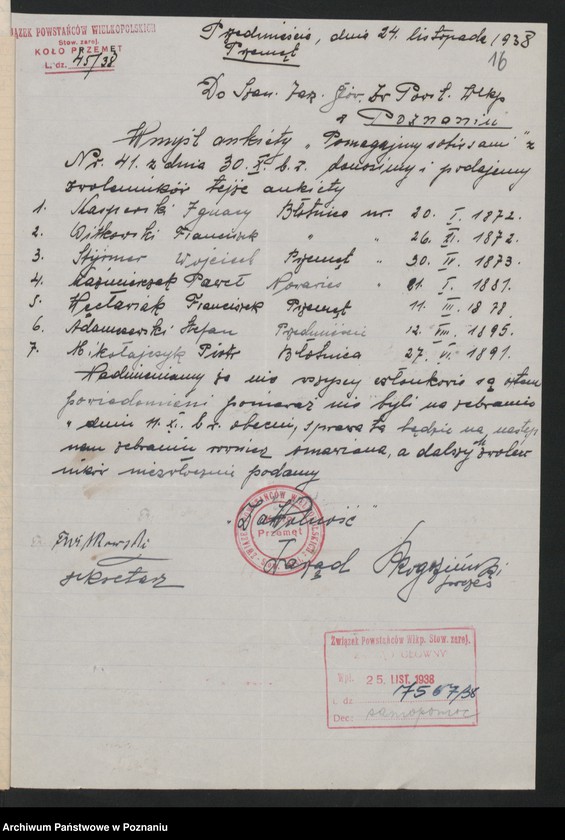 ZWIĄZEK POWSTAŃCÓW WIELKOPOLSKICH
Stow. zarej.
KOŁO PRZEMĘT
L. dz. 45/38
Przedmieście, dnia 24. listopada 1938
Przemęt
16
Do Szan. Zarz. Głów. Zw Powst. Wlkp
w Poznaniu
W myśl ankiety „Pomagajmy sobie sami" z
Nr. 41. z dnia 30. X. b. r. donosimy i podajemy
zwolenników tejże ankiety
1. Kasperski Ignacy Błotnica ur. 20. I. 1872.
2. Witkowski Franciszek " " 26. XI. 1872.
3. Stürmer Wojciech Przemęt " 30. 1873.
4. Kaźmierczak Paweł " 21. I. 1881.
5. Węclawiak Franciszek Przemęt 11. III. 1878.
6. Adamczewski Stefan Przedmieście 12. VIII. 1895.
7. Mikołajczyk Piotr Błotnica 27. VI. 1891.
Nadmieniamy że nie wszyscy członkowie są o tem
powiadomieni ponieważ nie byli na zebraniu
w dniu 11. XI. b. r. obecni, sprawa ta będzie na następ
nem zebraniu również omawiana, a dalszych zwolen
ników niezwłocznie podamy
„Za Wolność"
Zarząd
sekretarz
prezes
ZWIĄZEK POWSTAŃCÓW WIELKOPOLSKICH
Przemęt
Związek Powstańców Wlkp. Stow. zarej.
ZARZĄD GŁÓWNY
Wpł. 25. LIST. 1938
L. dz. 1756 7/38
Dec: samopomoc
Archiwum Państwowe w Poznaniu